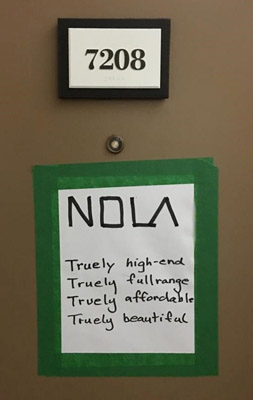 7208
NOLA
Truely high-end
Truely fullrange
Truely affordable
Truely beautiful